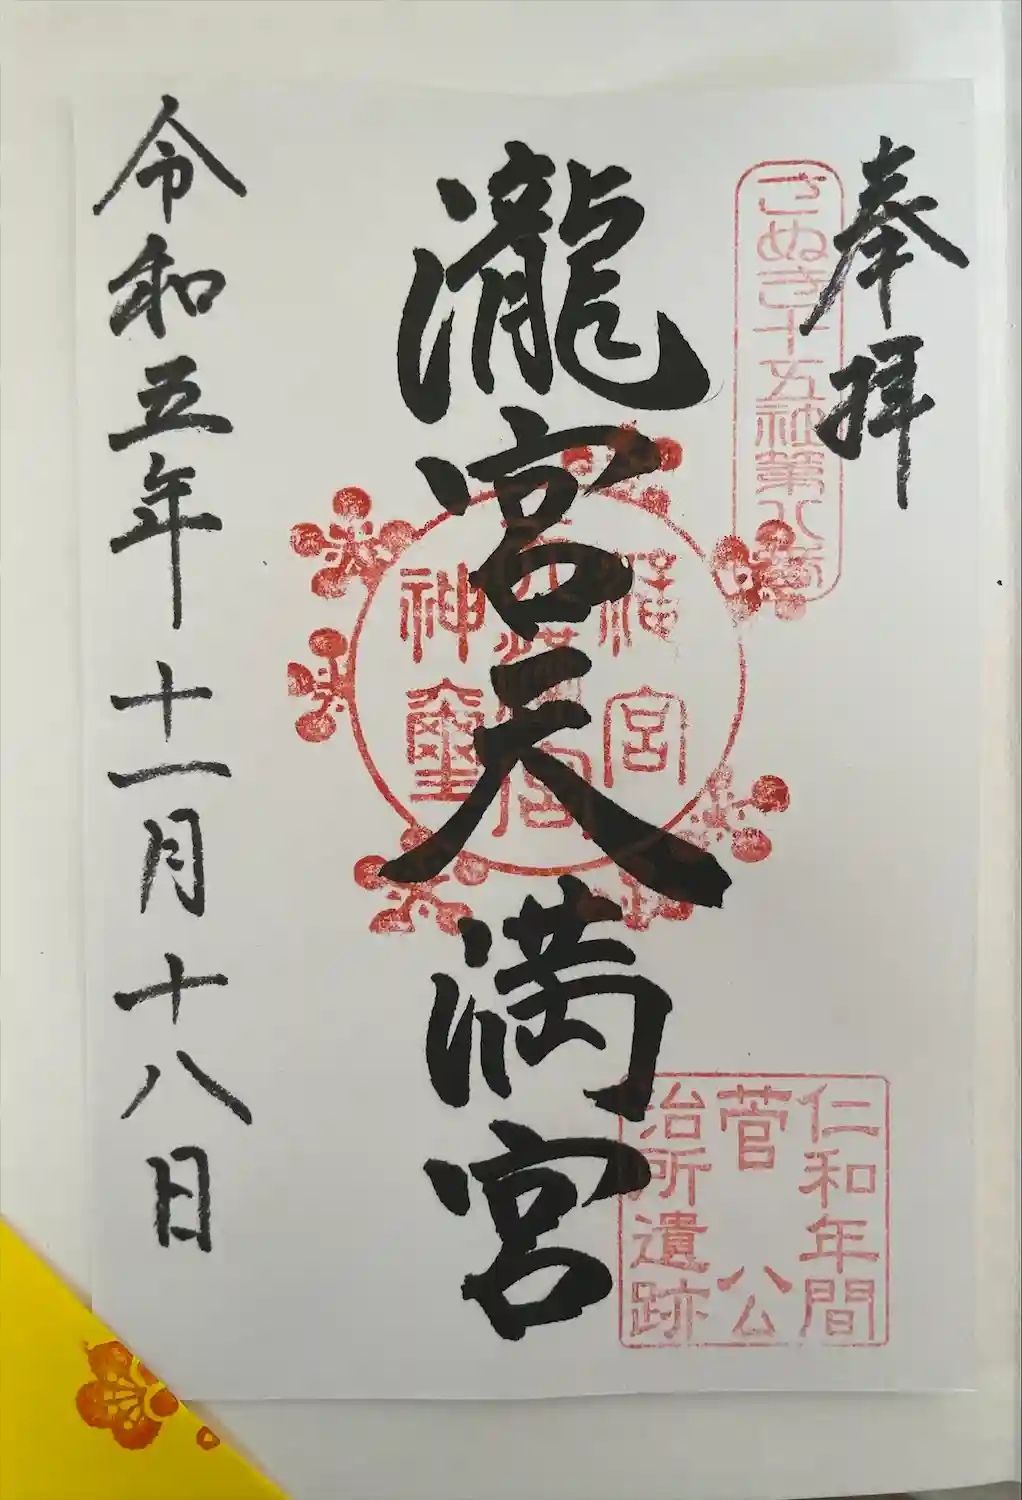 奉拝
さぬき十五社第八番
瀧宮天満宮
滿宮
天滿宮
神璽
仁和年間
菅公
治所遺跡
令和五年十一月十八日